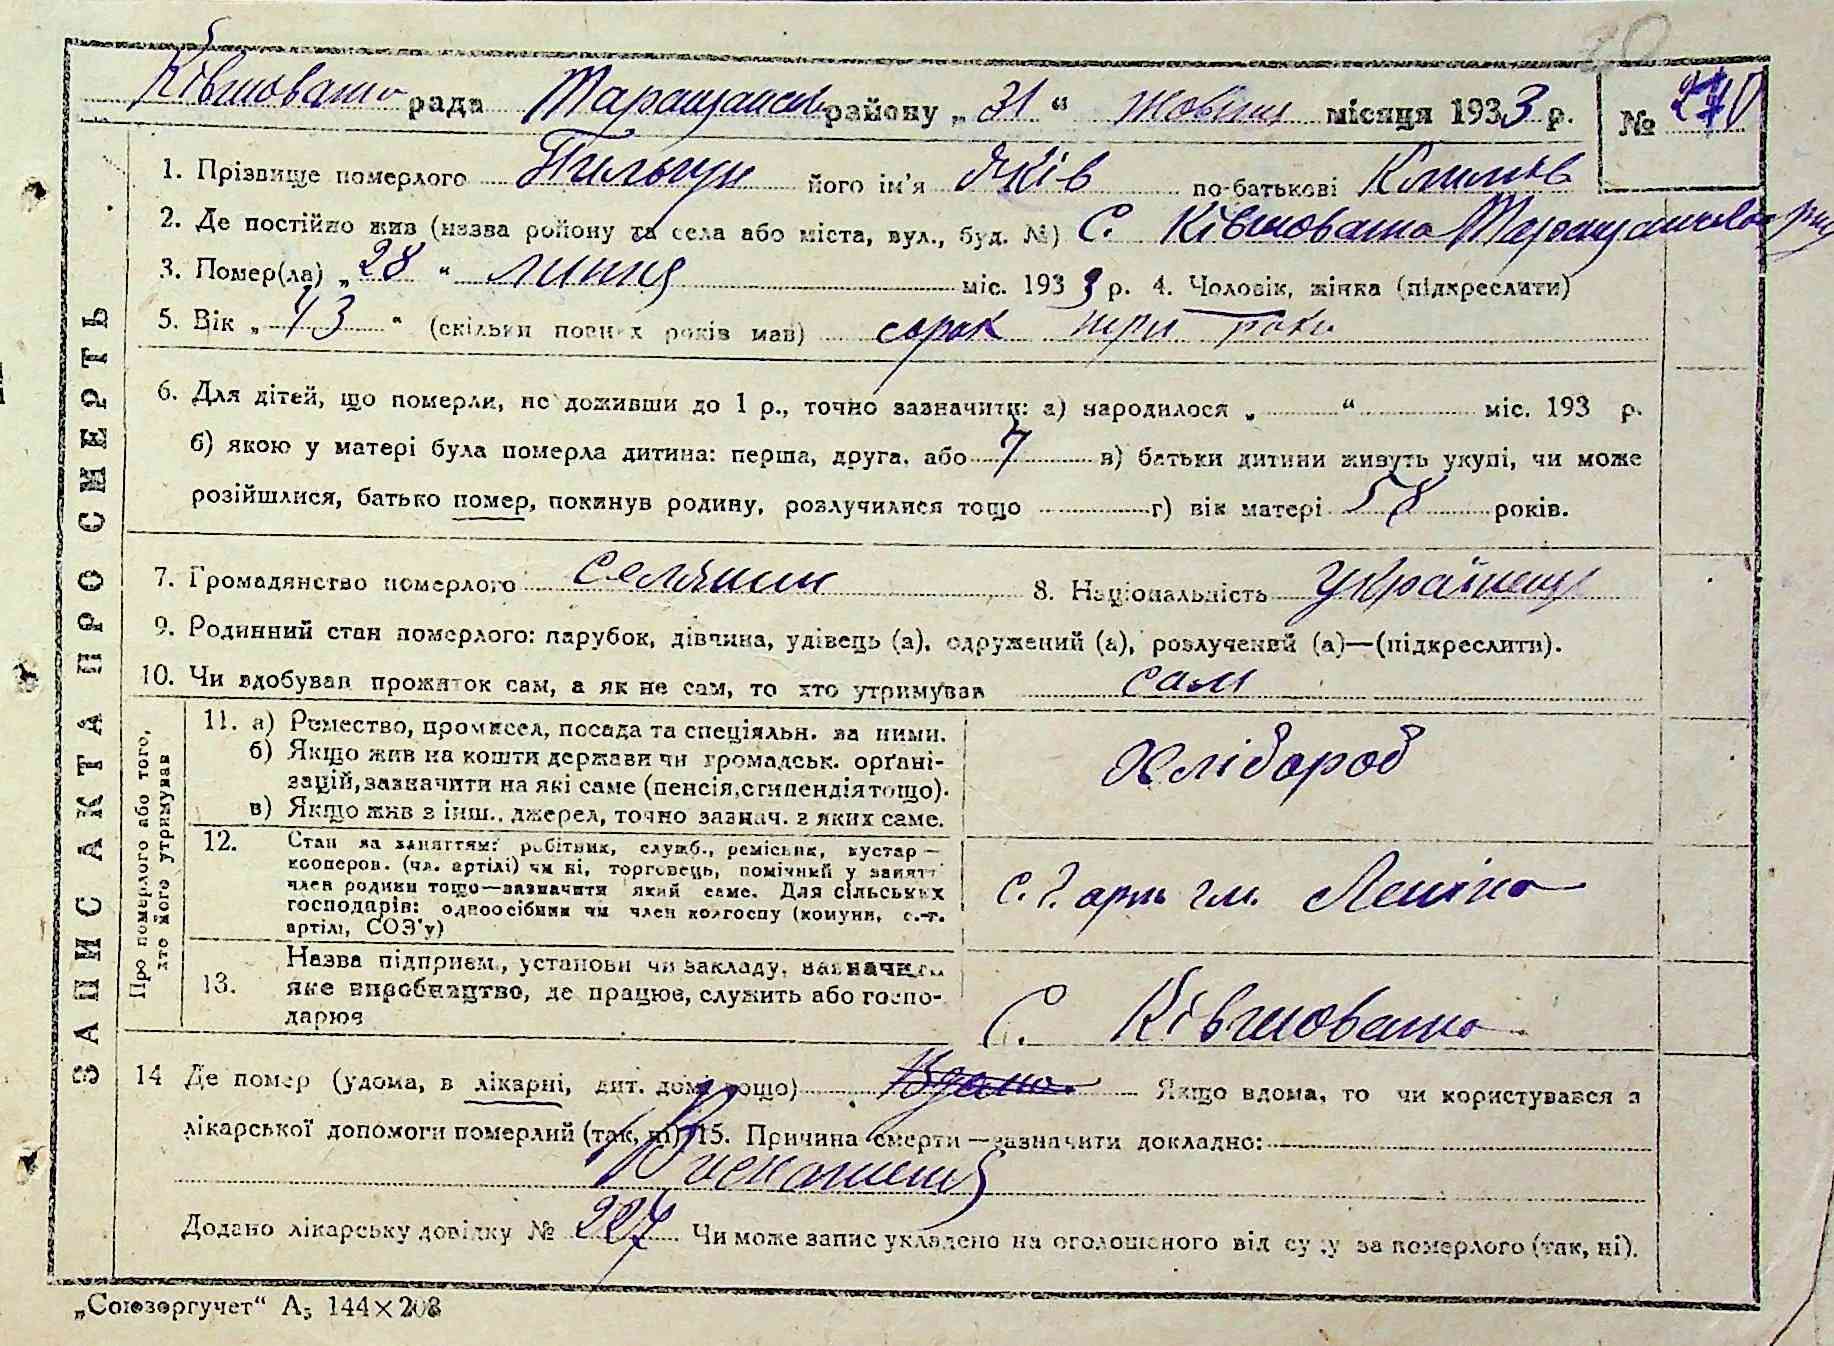 Ківшовато рада Таращанськ району „31“ жовтня місяця 1933 р. № 270
1. Прізвище померлого його ім'я Яків по-батькові Климів
2. Де постійно жив (назва району та села або міста, вул., буд. №) С. Ківшовата Таращанського р-ну
3. Помер(ла) „28“ липня міс. 1933 р. 4. Чоловік, жінка (підкреслити)
5. Вік „43“ (скільки повних років мав) сорок три роки
6. Для дітей, що померли, не доживши до 1 р., точно зазначити: а) народилося „ “ міс. 193 р.
б) якою у матері була померла дитина: перша, друга, або 7 в) батьки дитини живуть укупі, чи може
розійшлися, батько помер, покинув родину, розлучилися тощо г) вік матері 58 років.
7. Громадянство померлого селянин 8. Національність українец
9. Родинний стан померлого: парубок, дівчина, удівець (а), одружений (а), розлучений (а)—(підкреслити).
10. Чи здобував прожиток сам, а як не сам, то хто утримував сам
ЗАПИС АКТА ПРО СМЕРТЬ
Про померлого або того,
хто його утримував
11. а) Ремество, промисел, посада та спеціяльн. за ними.
б) Якщо жив на кошти держави чи громадськ. орґані-
зацій, зазначити на які саме (пенсія, стипендія тощо).
в) Якщо жив з інш., джерел, точно зазнач. з яких саме.
Хлібороб
12. Стан за заняттям: робітник, служб., ремісник, кустар—
кооперов. (чл. артілі) чи ні, торговець, помічний у занятт
член родини тощо—зазначити який саме. Для сільських
господарів: одноосібник чи член колгоспу (комуни, с.-г.
артілі, СОЗ'у)
с. г. арт. ім. Леніна
13. Назва підприєм., установи чи закладу, зазначити
яке виробництво, де працює, служить або госпо-
дарює
С. Ківшовата
14 Де помер (удома, в лікарні, дит. домі тощо) Вдома Якщо вдома, то чи користувався з
лікарської допомоги померлий (так, ні) 15. Причина смерти—зазначити докладно:
Виснаження
Додано лікарську довідку № 227 Чи може запис укладено на оголошеного від суду за померлого (так, ні).
„Союзоргучет“ А5 144×203